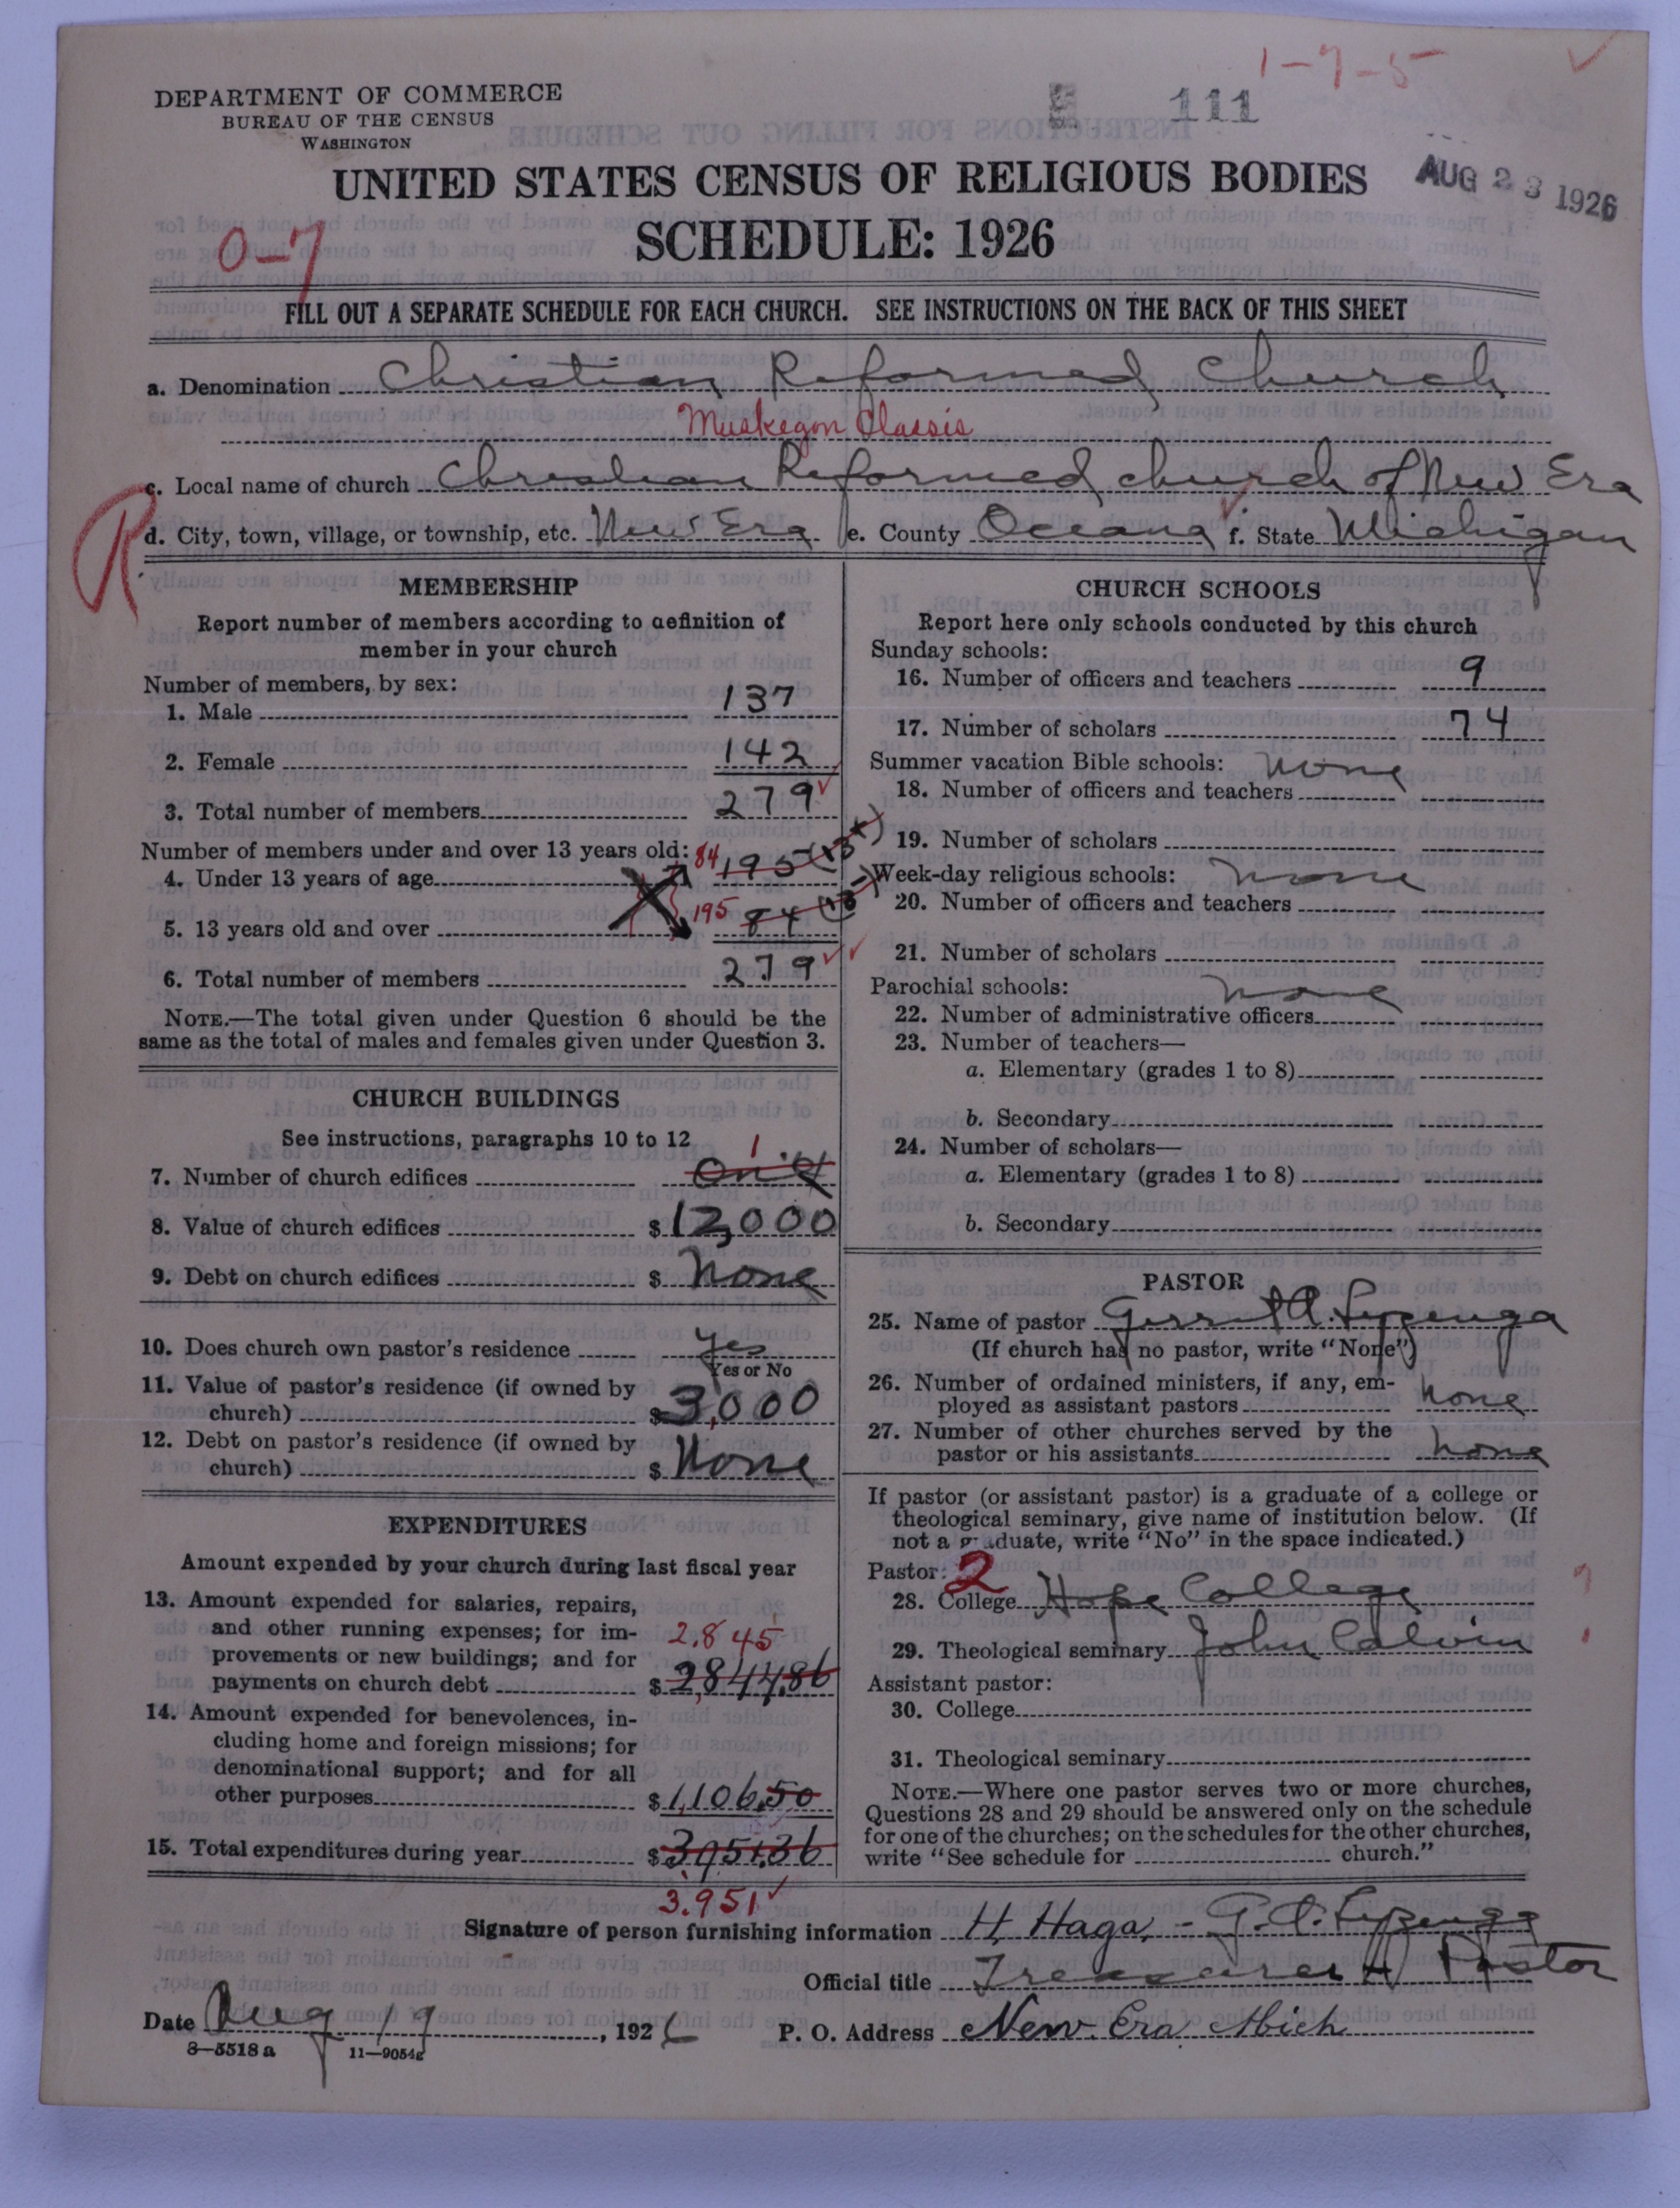 1-7-5
111
DEPARTMENT OF COMMERCE
BUREAU OF THE CENSUS
WASHINGTON
UNITED STATES CENSUS OF RELIGIOUS BODIES
AUG 23 1926
SCHEDULE: 1926
0-7
FILL OUT A SEPARATE SCHEDULE FOR EACH CHURCH. SEE INSTRUCTIONS ON THE BACK OF THIS SHEET
a. Denomination Christian Reformed Church
Muskegon Classis
c. Local name of church Christian Reformed church of New Era
R
d. City, town, village, or township, etc. New Era e. County Oceana f. State Michigan
MEMBERSHIP
Report number of members according to definition of
member in your church
Number of members, by sex:
1. Male 137
2. Female 142
3. Total number of members 279
Number of members under and over 13 years old:
4. Under 13 years of age 84 195 (13+)
5. 13 years old and over 195 84 (13-)
6. Total number of members 279
NOTE.—The total given under Question 6 should be the
same as the total of males and females given under Question 3.
CHURCH BUILDINGS
See instructions, paragraphs 10 to 12
7. Number of church edifices 1
8. Value of church edifices $12,000
9. Debt on church edifices $ None
10. Does church own pastor's residence yes
Yes or No
11. Value of pastor's residence (if owned by
church) $3,000
12. Debt on pastor's residence (if owned by
church) $ None
EXPENDITURES
Amount expended by your church during last fiscal year
13. Amount expended for salaries, repairs,
and other running expenses; for im-
provements or new buildings; and for
2,845
payments on church debt $ 2,844.86
14. Amount expended for benevolences, in-
cluding home and foreign missions; for
denominational support; and for all
other purposes $1,106.50
15. Total expenditures during year $3,951.36
3.951
CHURCH SCHOOLS
Report here only schools conducted by this church
Sunday schools:
16. Number of officers and teachers 9
17. Number of scholars 74
Summer vacation Bible schools: none
18. Number of officers and teachers
19. Number of scholars
Week-day religious schools: none
20. Number of officers and teachers
21. Number of scholars
Parochial schools: none
22. Number of administrative officers
23. Number of teachers—
a. Elementary (grades 1 to 8)
b. Secondary
24. Number of scholars—
a. Elementary (grades 1 to 8)
b. Secondary
PASTOR
25. Name of pastor Gerrit A. Lyzenga
(If church has no pastor, write "None")
26. Number of ordained ministers, if any, em-
ployed as assistant pastors none
27. Number of other churches served by the
pastor or his assistants none
If pastor (or assistant pastor) is a graduate of a college or
theological seminary, give name of institution below. (If
not a graduate, write "No" in the space indicated.)
Pastor: 2
28. College Hope College
29. Theological seminary John Calvin
Assistant pastor:
30. College
31. Theological seminary
NOTE.—Where one pastor serves two or more churches,
Questions 28 and 29 should be answered only on the schedule
for one of the churches; on the schedules for the other churches,
write "See schedule for church."
Signature of person furnishing information H. Haga, - G. A. Lyzenga
Official title Treasurer Pastor
Date Aug 19, 1926 P. O. Address New Era Mich
8—5518 a 11—9054g